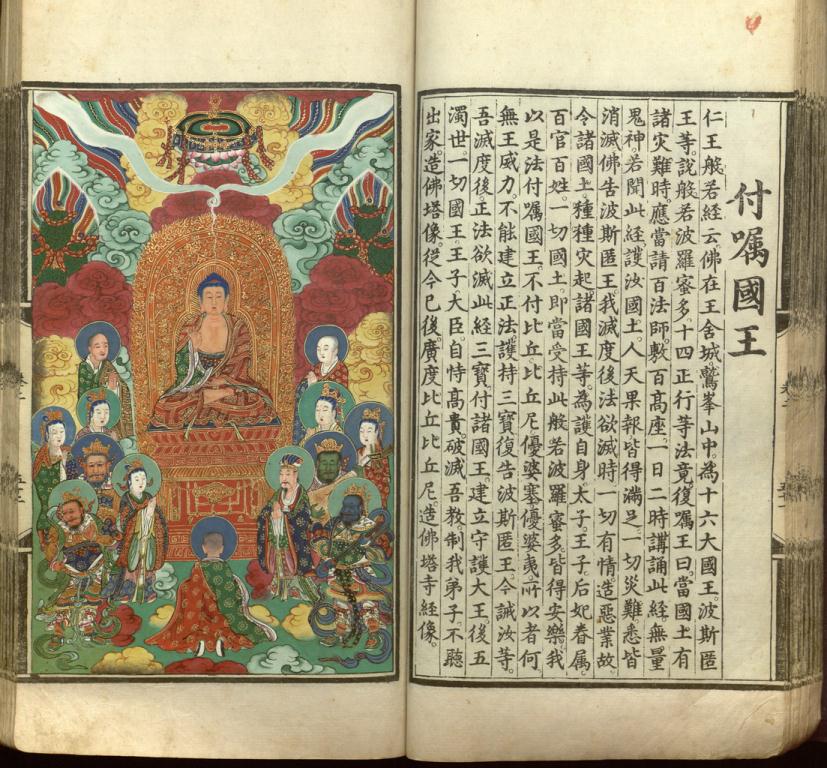 付嘱國王
仁王般若經云。佛在王舍城鷲峯山中。為十六大國王。波斯匿
王等。說般若波羅蜜多。十四正行等法竟。復嘱王曰。當國土有
諸灾難時。應當請百法師。敷百高座。一日二時。講誦此經。無量
鬼神。若聞此經。護汝國土。人天果報。皆得滿足。一切災難。悉皆
消滅。佛告波斯匿王。我滅度後。法欲滅時。一切有情。造惡業故。
令諸國土。種種灾起。諸國王等。為護自身。太子。王子。后妃。眷属。
百官百姓。一切國土。即當受持此般若波羅蜜多。皆得安樂。我
以是法。付嘱國王。不付比丘比丘尼。優婆塞優婆夷。所以者何。
無王威力。不能建立正法。護持三寶。復告波斯匿王。今誡汝等。
吾滅度後。正法欲滅。此經三寶。付諸國王。建立守護。大王。後五
濁世。一切國王。王子大臣。自恃高貴。破滅吾教。制我弟子。不聽
出家。造佛塔像。從今已後。廣度比丘比丘尼。造佛塔寺經像。